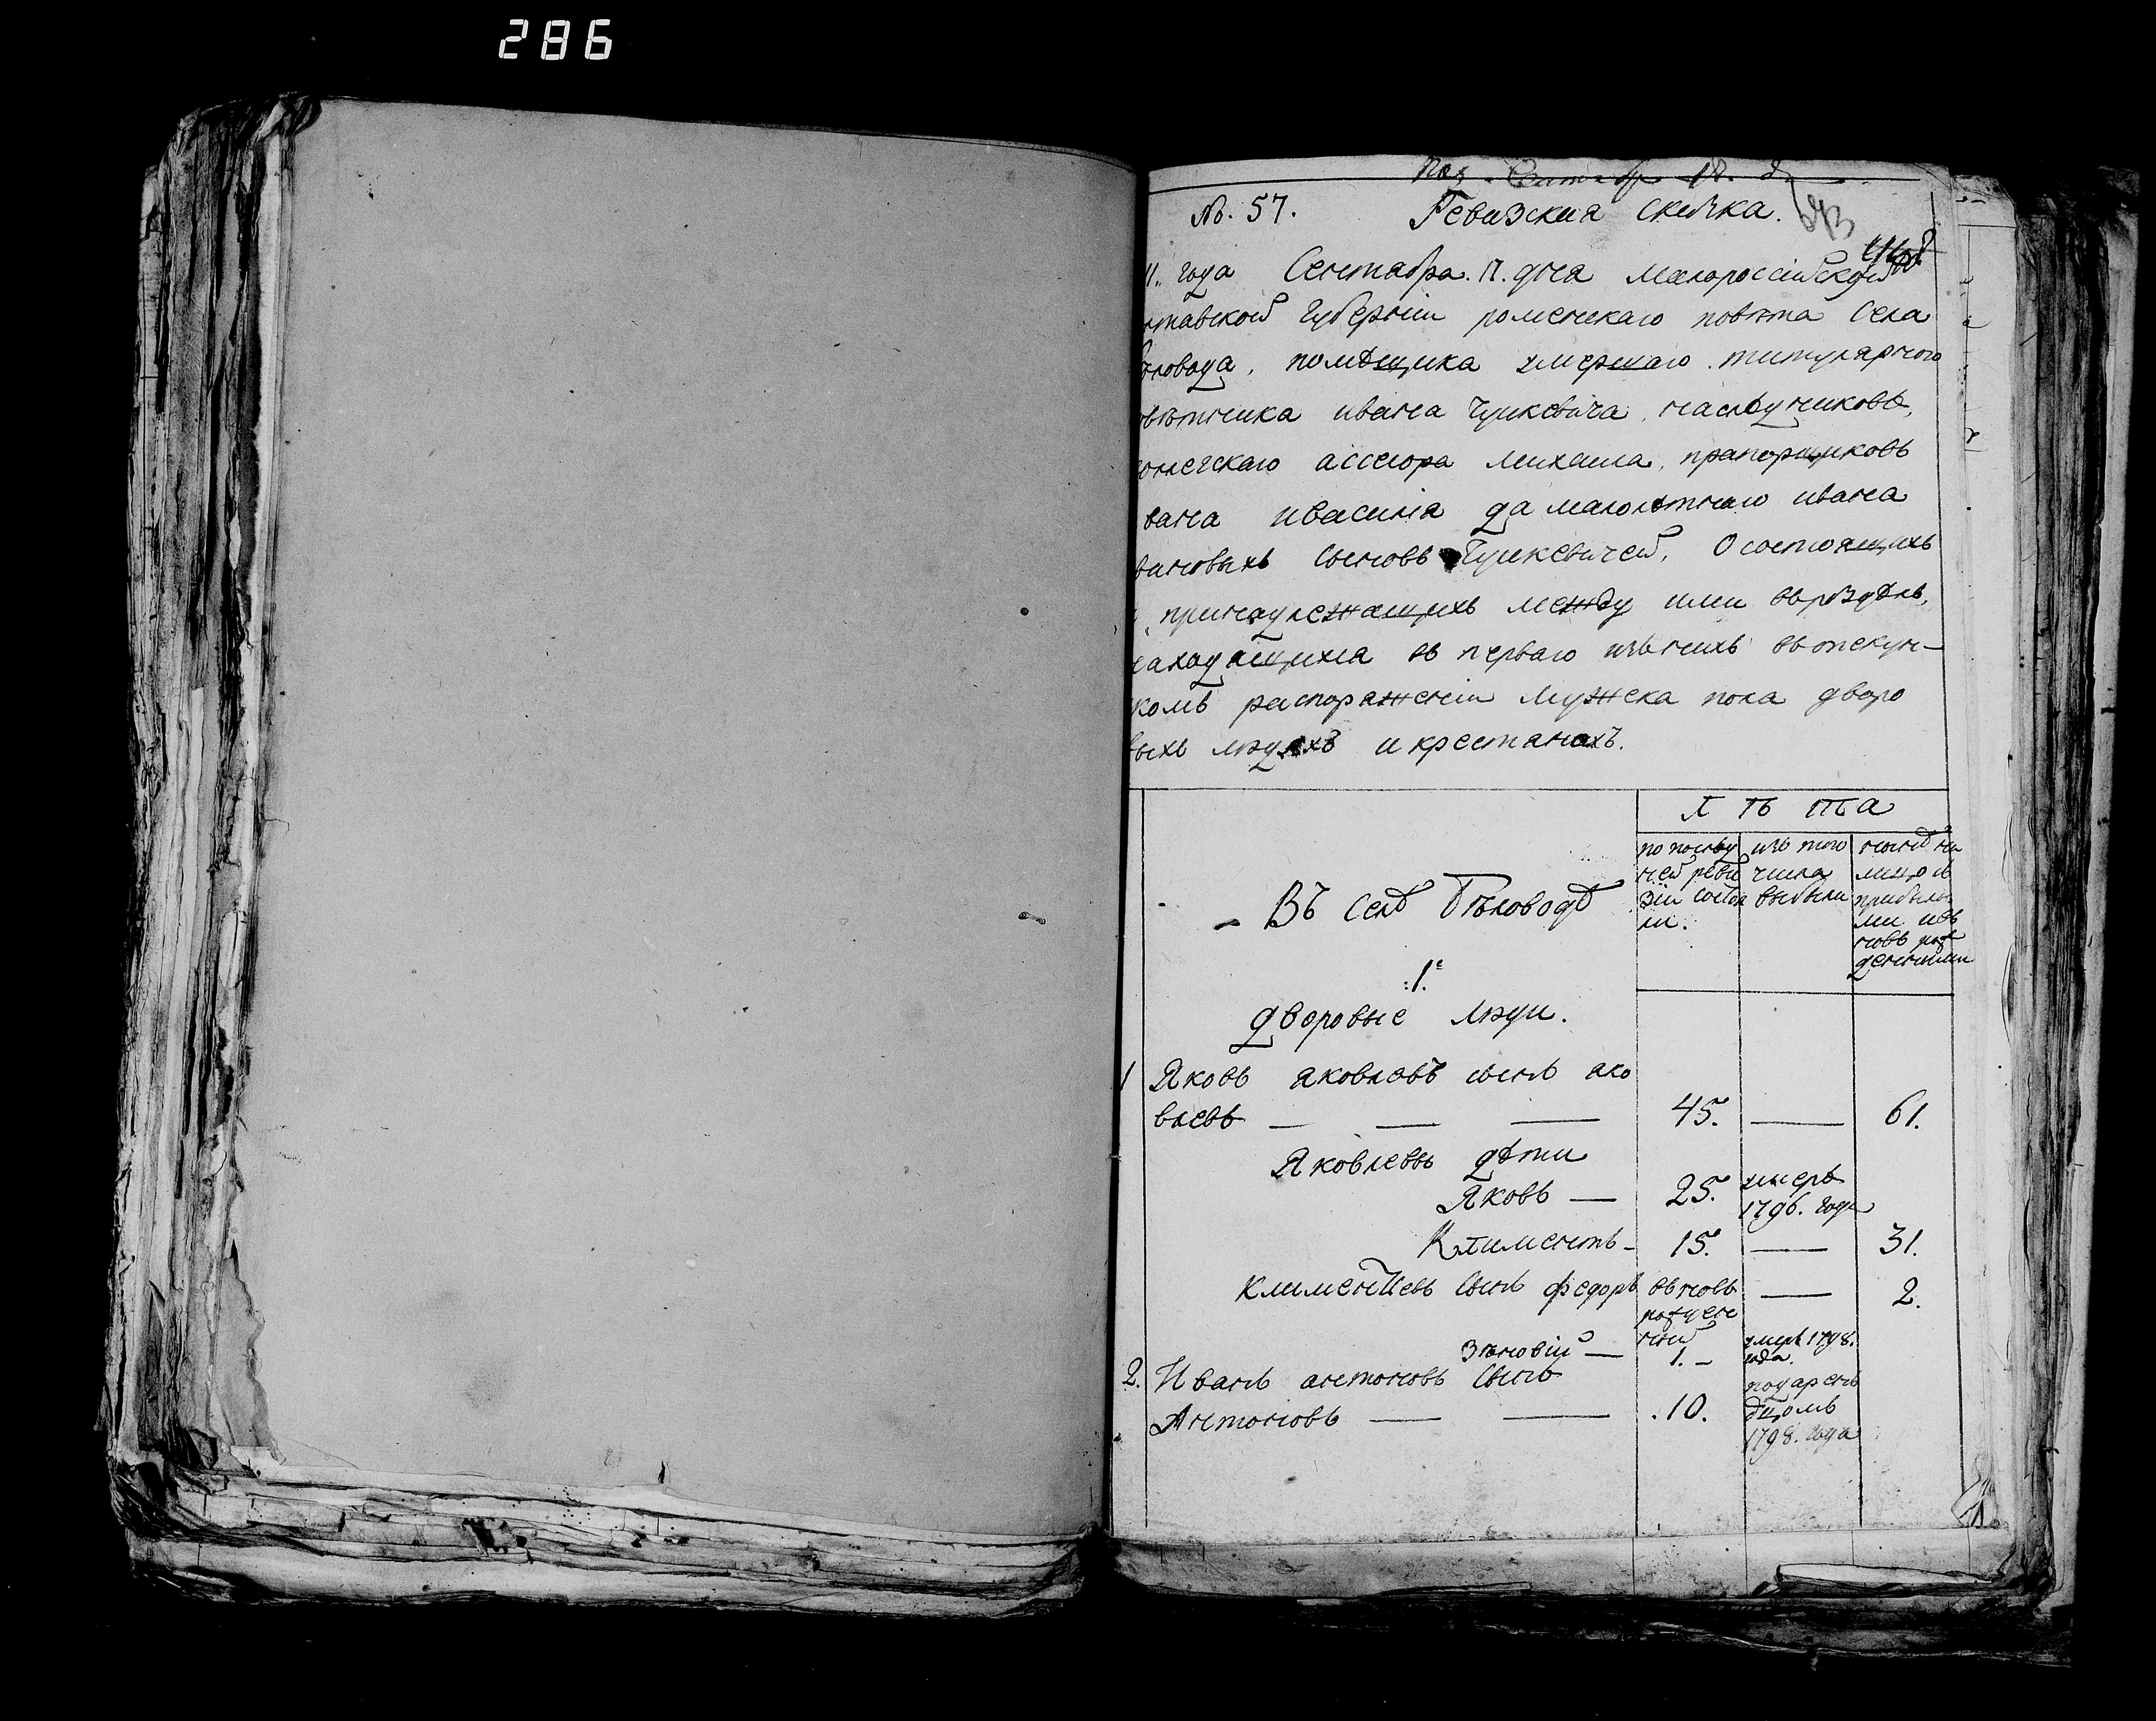 286
Сентябр 18. д
No. 57. Ревизская скаска.
11. года Сентября. 17. дня малороссийской
лтавской губернии роменскаго повѣта села
ловода, помѣщика умершаго титулярного
вѣтника ивана наслѣдниковъ,
оллегскаго ассесора михаила, прапорщиковъ
вана ивасилія да малолѣтнаго ивана
вановыхъ сыновъ О состоящихъ
принадлежащихъ между ими въ роздѣлъ,
находящихся въ перваго изъ нихъ въ опекун-
комъ распоряженіи мужска пола дворо
выхъ людяхъ и крестянахъ.
Л ѣ та
по послѣд изъ того нынѣ на
ней реви числа лицо с
зіи состоя выбыли прибылы
ли. ми изъ
новъ рож
денными
Въ селѣ Бѣловодѣ
:1.е
дворовые люди.
1 Яковъ яковлевъ сынъ яко
влевъ — — — 45. — 61.
Яковлевы дѣти
Яковъ — 25. умеръ
1796. года
Климентъ - 15. — 31.
Климентіевъ сынъ федоръ въновь — 2.
рожден
ный
Зѣновій — 1. - умеръ 1798.
года.
2. Иванъ антоновъ сынъ подаренъ
Антоновъ — — .10. дѣдомъ
1798. года